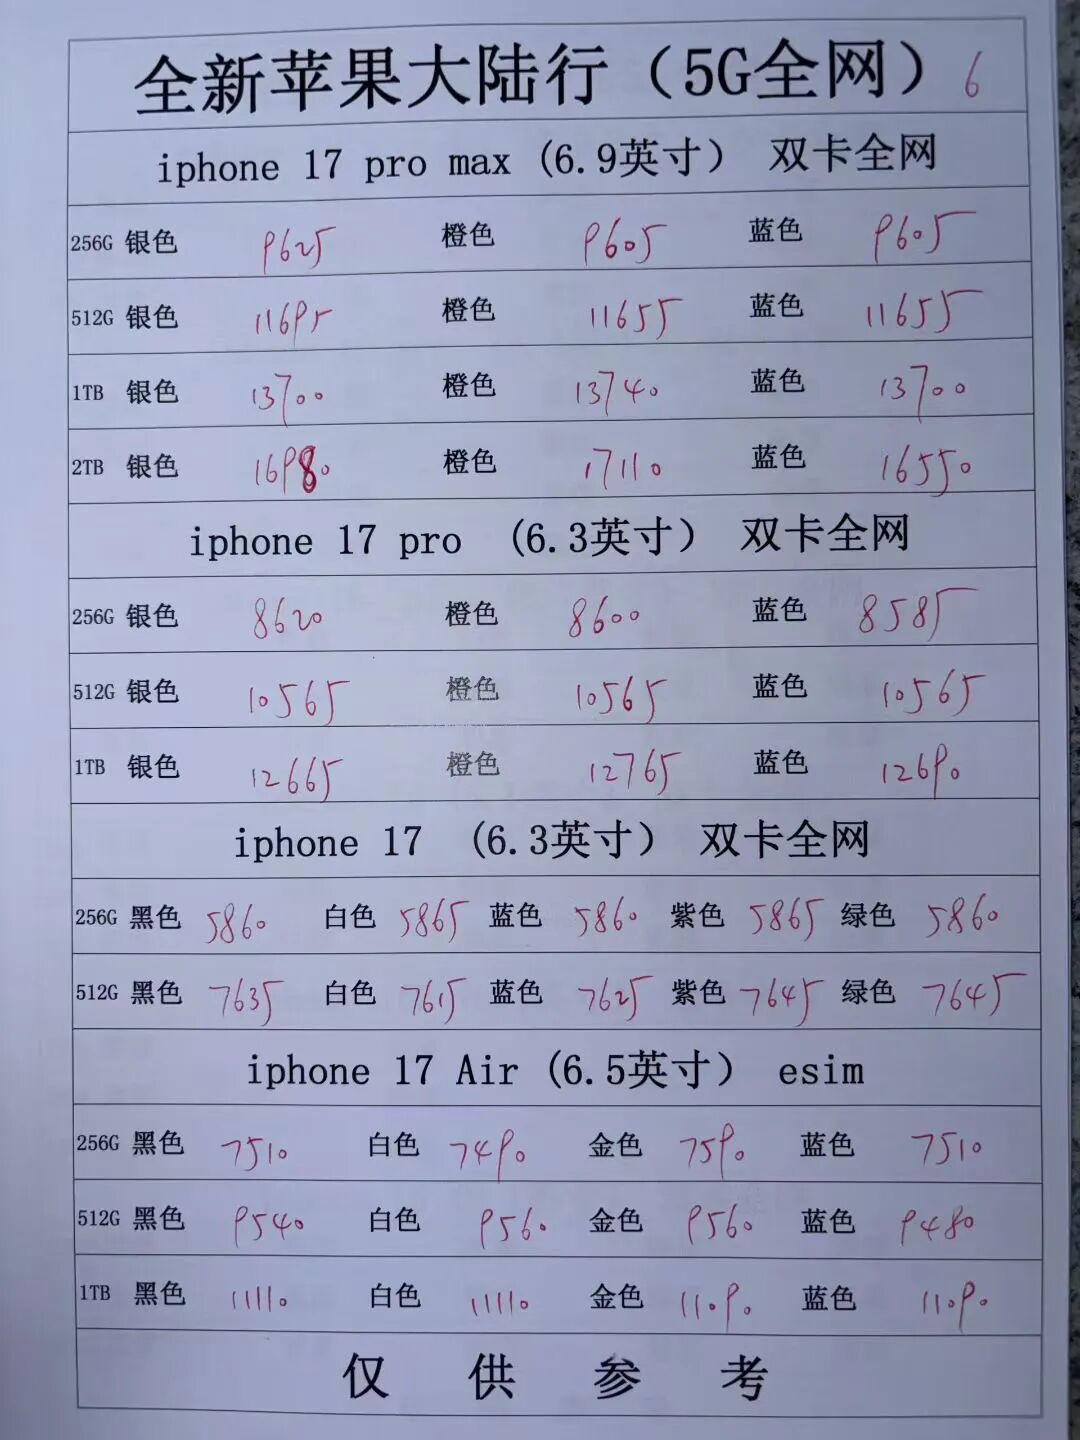 全新苹果大陆行（5G全网） 6
iphone 17 pro max (6.9英寸） 双卡全网
256G 银色 9625 橙色 9605 蓝色 9605
512G 银色 11695 橙色 11655 蓝色 11655
1TB 银色 13700 橙色 13740 蓝色 13700
2TB 银色 16980 橙色 17110 蓝色 16550
iphone 17 pro (6.3英寸） 双卡全网
256G 银色 8620 橙色 8600 蓝色 8585
512G 银色 10565 橙色 10565 蓝色 10565
1TB 银色 12665 橙色 12765 蓝色 12690
iphone 17 (6.3英寸） 双卡全网
256G 黑色 5860 白色 5865 蓝色 5860 紫色 5865 绿色 5860
512G 黑色 7635 白色 7615 蓝色 7625 紫色 7645 绿色 7645
iphone 17 Air (6.5英寸） esim
256G 黑色 7510 白色 7490 金色 7590 蓝色 7510
512G 黑色 9540 白色 9560 金色 9560 蓝色 9480
1TB 黑色 11110 白色 11110 金色 11090 蓝色 11090
仅供参考